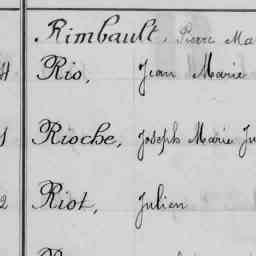 Rimbault, Pierre Ma
Rio, Jean Marie
Rioche, Joseph Marie Ju
Riot, Julien